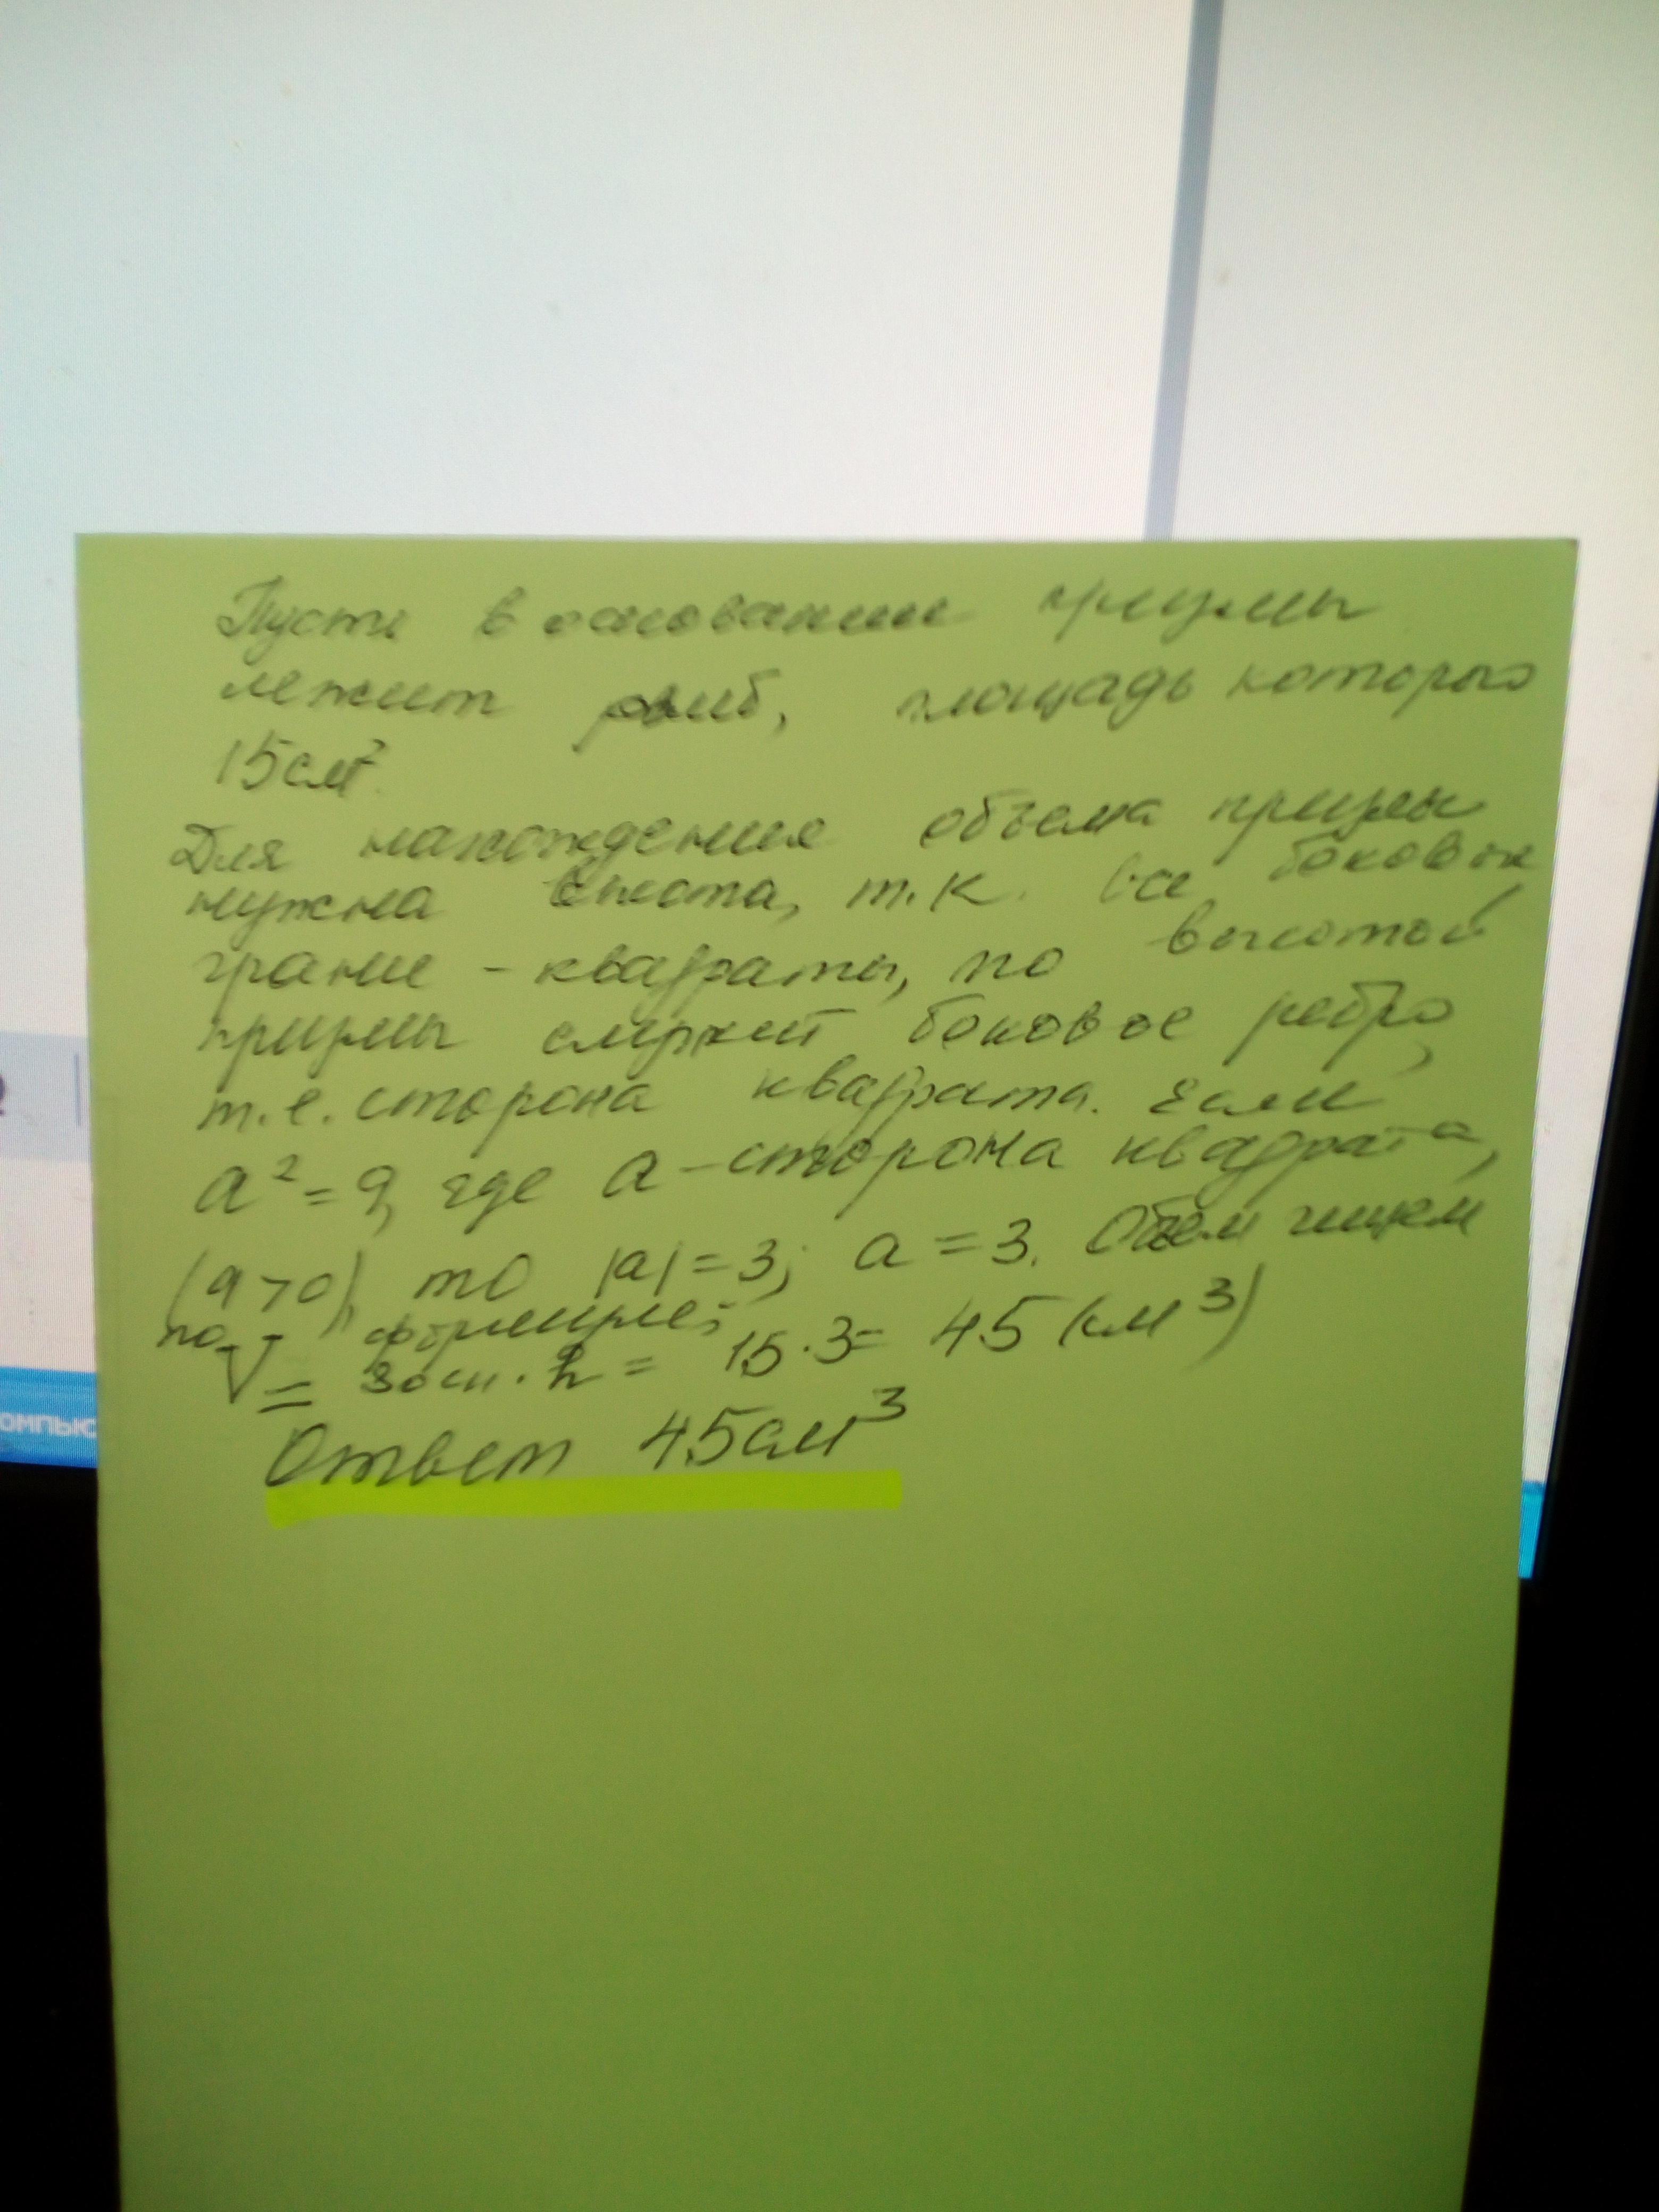 Пусть в основании призмы
лежит ромб, площадь которого
15см².
Для нахождения объема призмы
нужна высота, т.к. все боковые
грани - квадраты, то высотой
призмы служит боковое ребро,
т.е. сторона квадрата. Если
a² = 9, где a - сторона квадрата,
(a > 0), то |a| = 3; a = 3. Объем ищем
по формуле:
V = Sосн. · h = 15 · 3 = 45 (см³)
Ответ 45см³
омпью